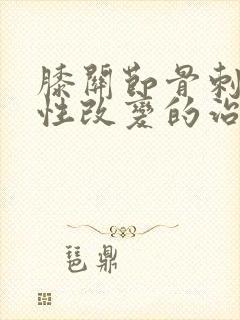 膝關節骨刺
性改變的治
琶鼎